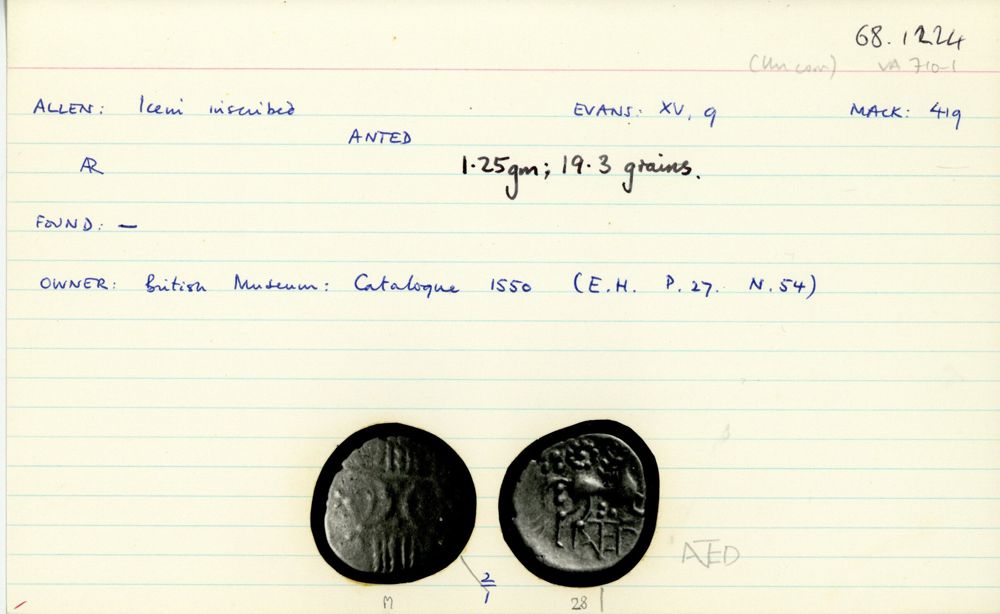 68.1224
(Uncorr) VA 710-1
ALLEN: Iceni inscribed EVANS: XV, 9 MACK: 419
ANTED
AR 1.25gm; 19.3 grains.
FOUND: —
OWNER: British Museum: Catalogue 1550 (E.H. P.27. N.54)
ATED
2/1
M 28